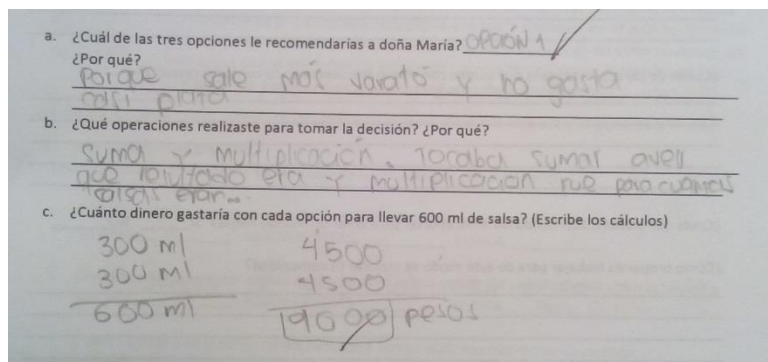 a. ¿Cuál de las tres opciones le recomendarías a doña María? OPCIÓN 1
¿Por qué?
Porque sale más varato y no gasta
casi plata
b. ¿Qué operaciones realizaste para tomar la decisión? ¿Por qué?
Suma y multiplicación. Tocaba sumar aver
que resultado era y multiplicación fue para cuantas
salsas eran..
c. ¿Cuánto dinero gastaría con cada opción para llevar 600 ml de salsa? (Escribe los cálculos)
300 ml 4500
300 ml 4500
600 ml 9000 pesos